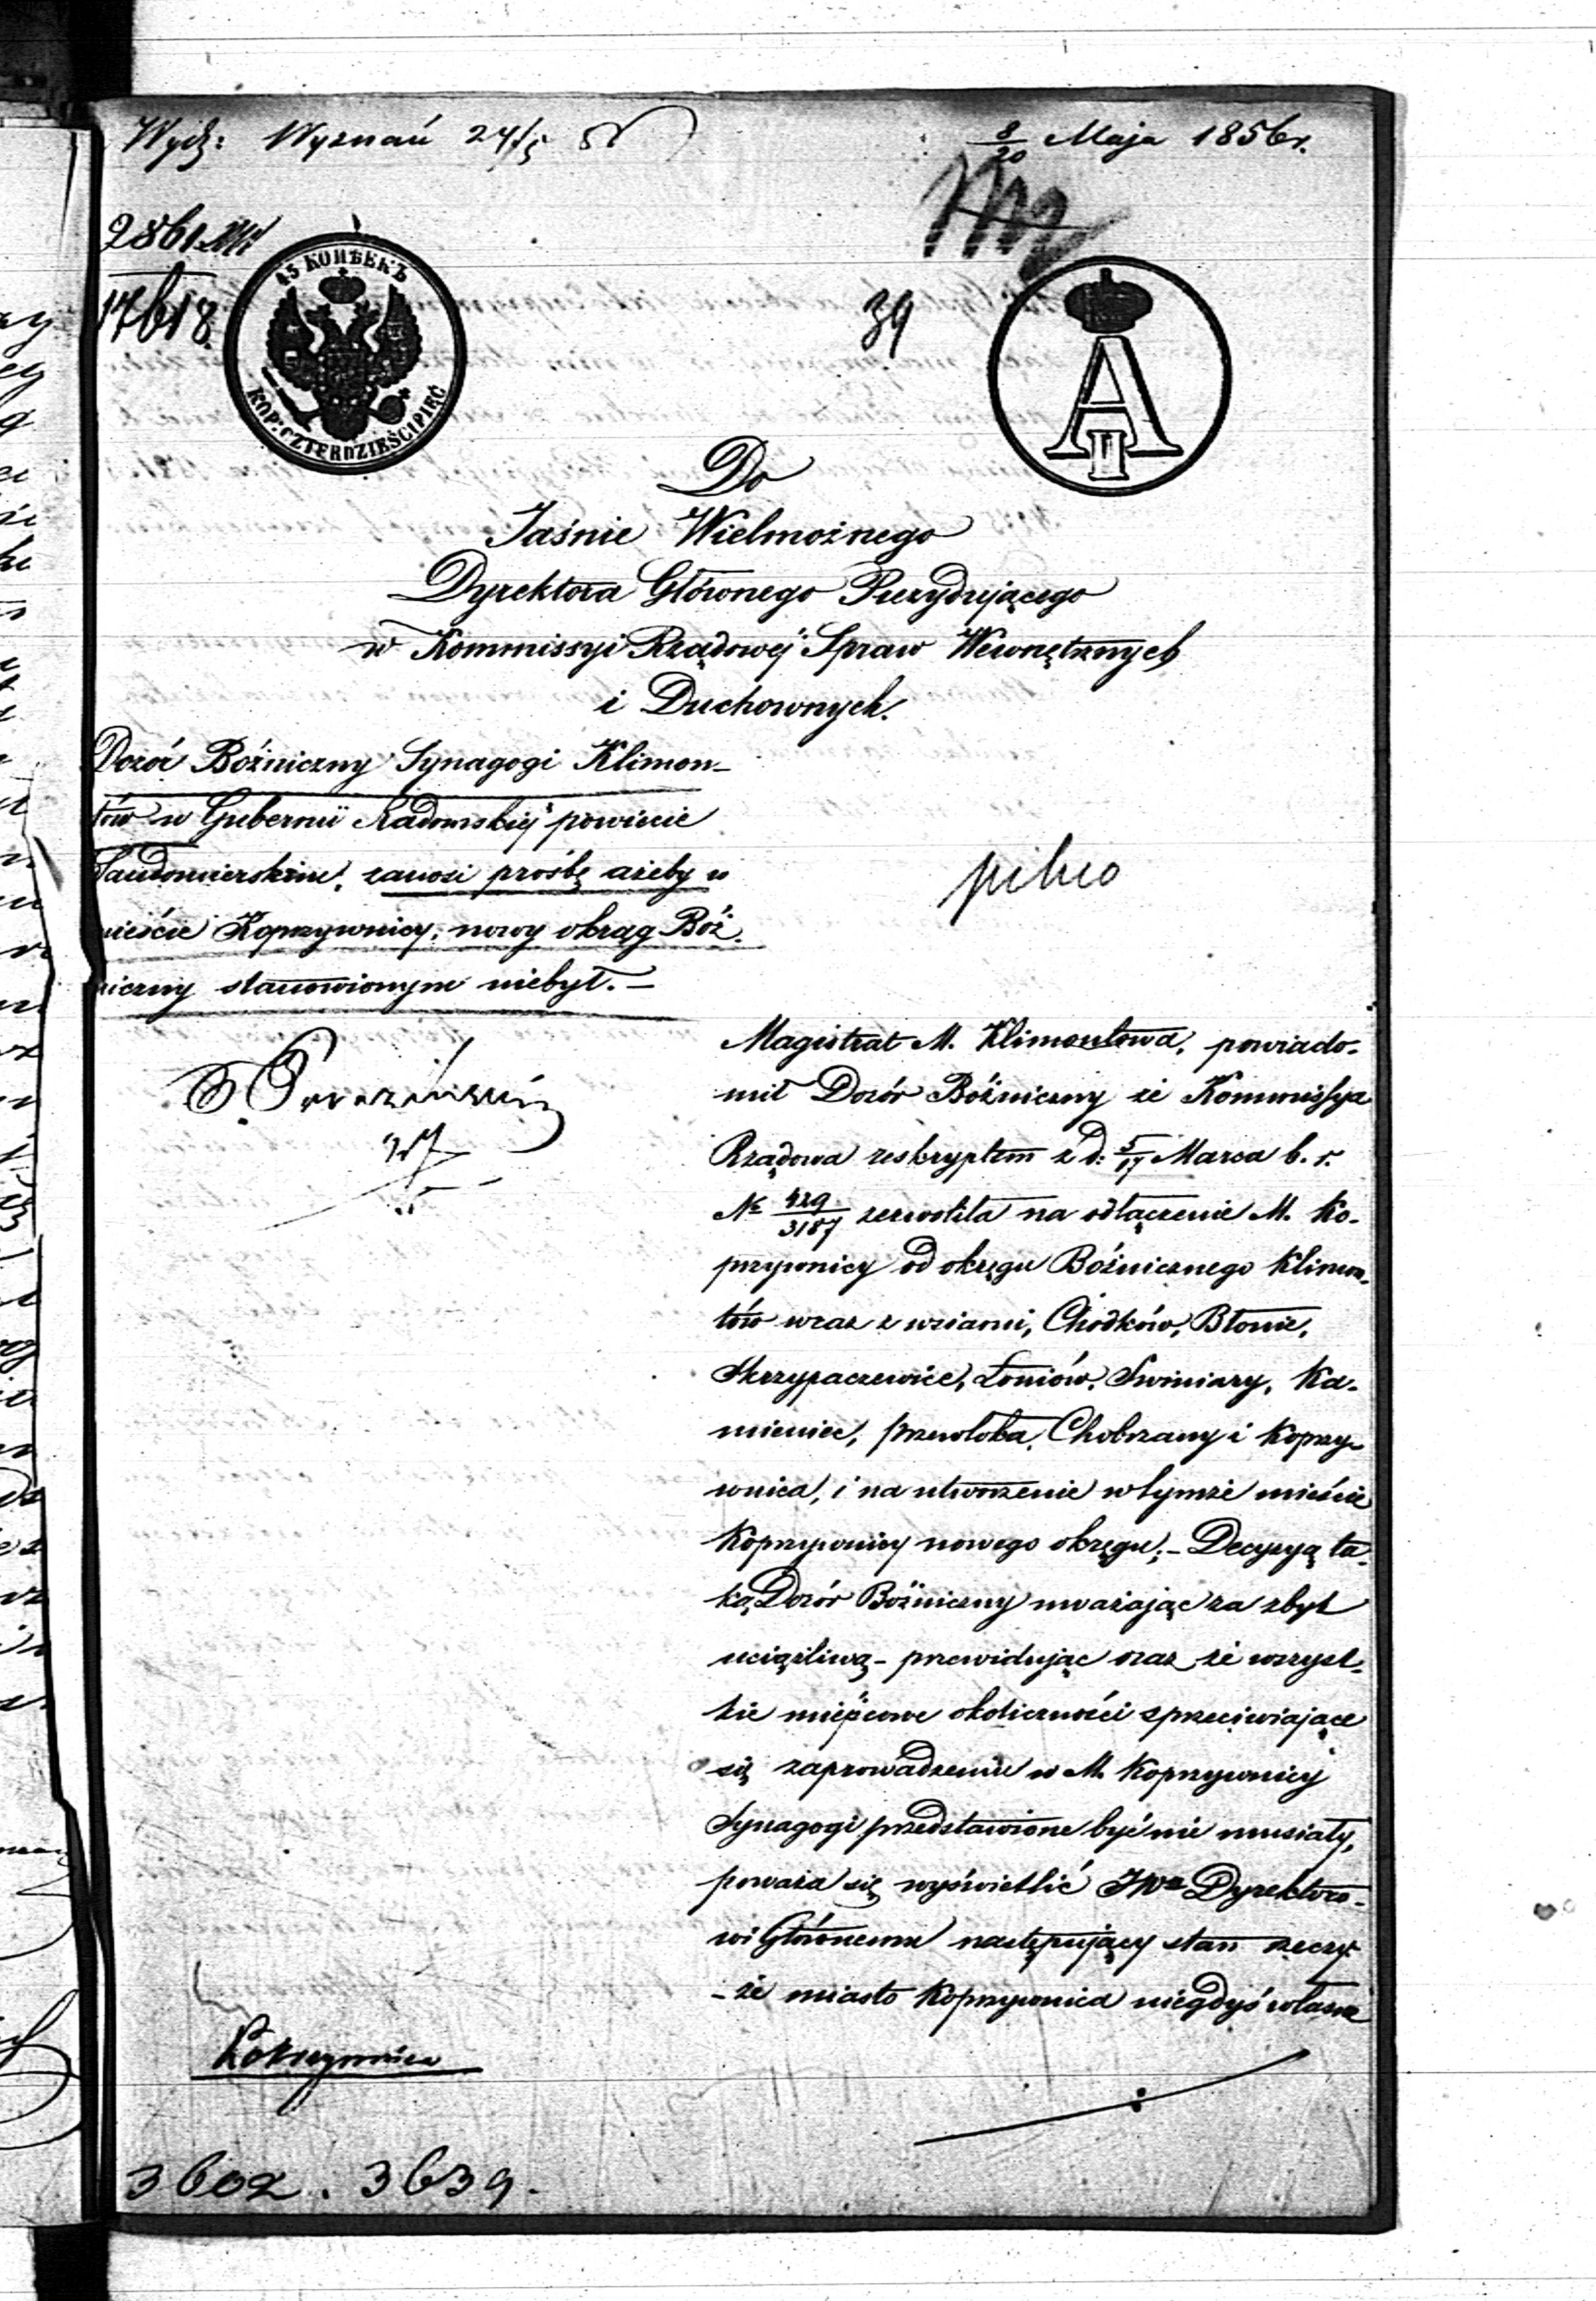 Wydz: Wyznań 24/5
8/20 Maja 1856 r.
2861
17618.
45 КОПѢЕКЪ
KOP: CZTERDZIEŚCI PIĘĆ
39
A II
Do
Jaśnie Wielmożnego
Dyrektora Głównego Prezydującego
w Kommissyi Rządowéj Spraw Wewnętrznych
i Duchownych.
Dozór Bóźniczny Synagogi Klimon-
tów w Gubernii Radomskiéj powiecie
Sandomierskim, zanosi prośbę ażeby w
mieście Koprzywnicy, nowy okrąg Bóź-
niczny stanowionym niebył. –
pilno
Magistrat M. Klimontowa, powiado-
mił Dozór Bóźniczny że Kommissya
Rządowa reskryptem z d: 5/17 Marca b. r.
№ 429/3187 zezwoliła na odłączenie M. Ko-
przywnicy od okręgu Bóźnicznego Klimon-
tów wraz z wsiami, Chodków, Błonie,
Skrzypaczewice, Łoniów, Swiniary, Ka-
mieniec, przewłoka, Chobrzany i Koprzy-
wnica, i na utworzenie w tymże mieście
Koprzywnicy nowego okręgu; – Decyzyą ta-
ką Dozór Bóźniczny uważając za zbyt
uciążliwą – przewidując oraz że wszyst-
kie miejscowe okoliczności sprzeciwiające
się zaprowadzeniu w M. Koprzywnicy
Synagogi przedstawione być nie musiały,
poważa się wyświetlić JWu Dyrektoro-
wi Głównemu następujący stan rzeczy
– że miasto Koprzywnica niegdyś własne
Koprzywnica
3602. 3639.